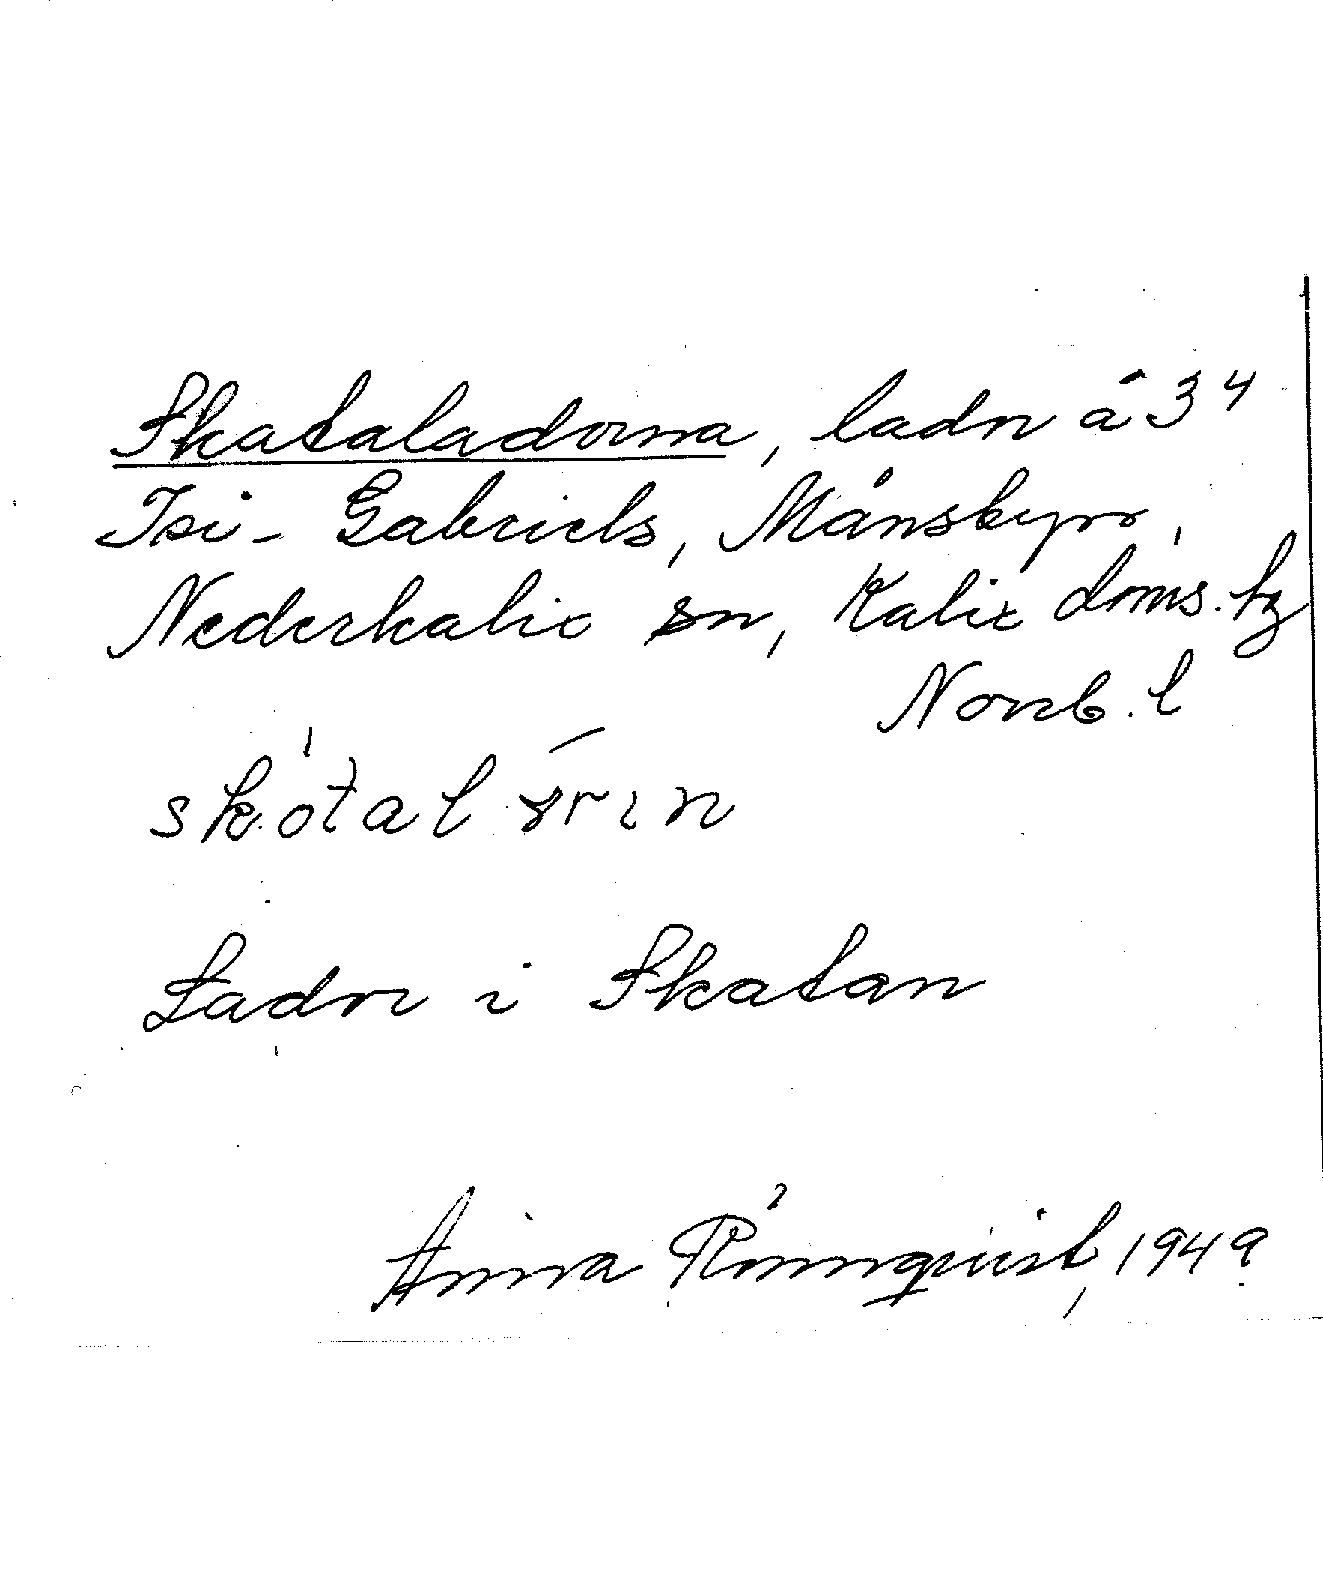 Skataladorna, lador å 3⁴
Isi-Gabriels, Månsbyn,
Nederkalix sn, Kalix doms. tg
Norrb. l
skòtal
Lador i Skatan
Anna Rönnquist, 1949